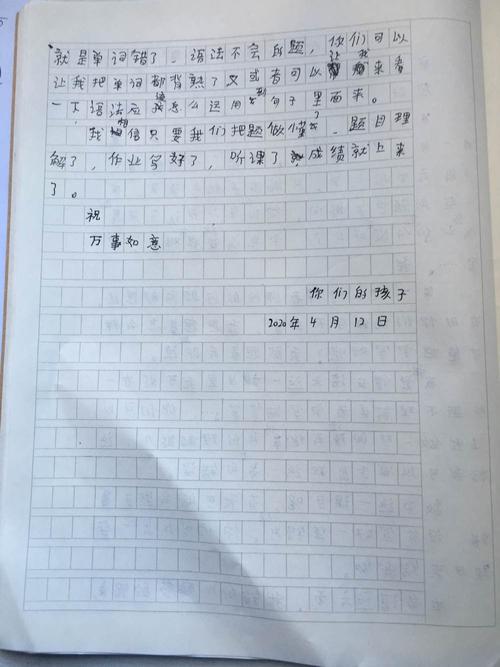 就是单词错了，语法不会的题，你们可以
让我把单词都背熟了又或者可以让我来看
一下语法应该怎么运用到句子里面来。
我相信只要我们把题做懂了，题目理
解了，作业写好了，听课了，成绩就上来
了。
祝
万事如意
你们的孩子
2020年4月12日